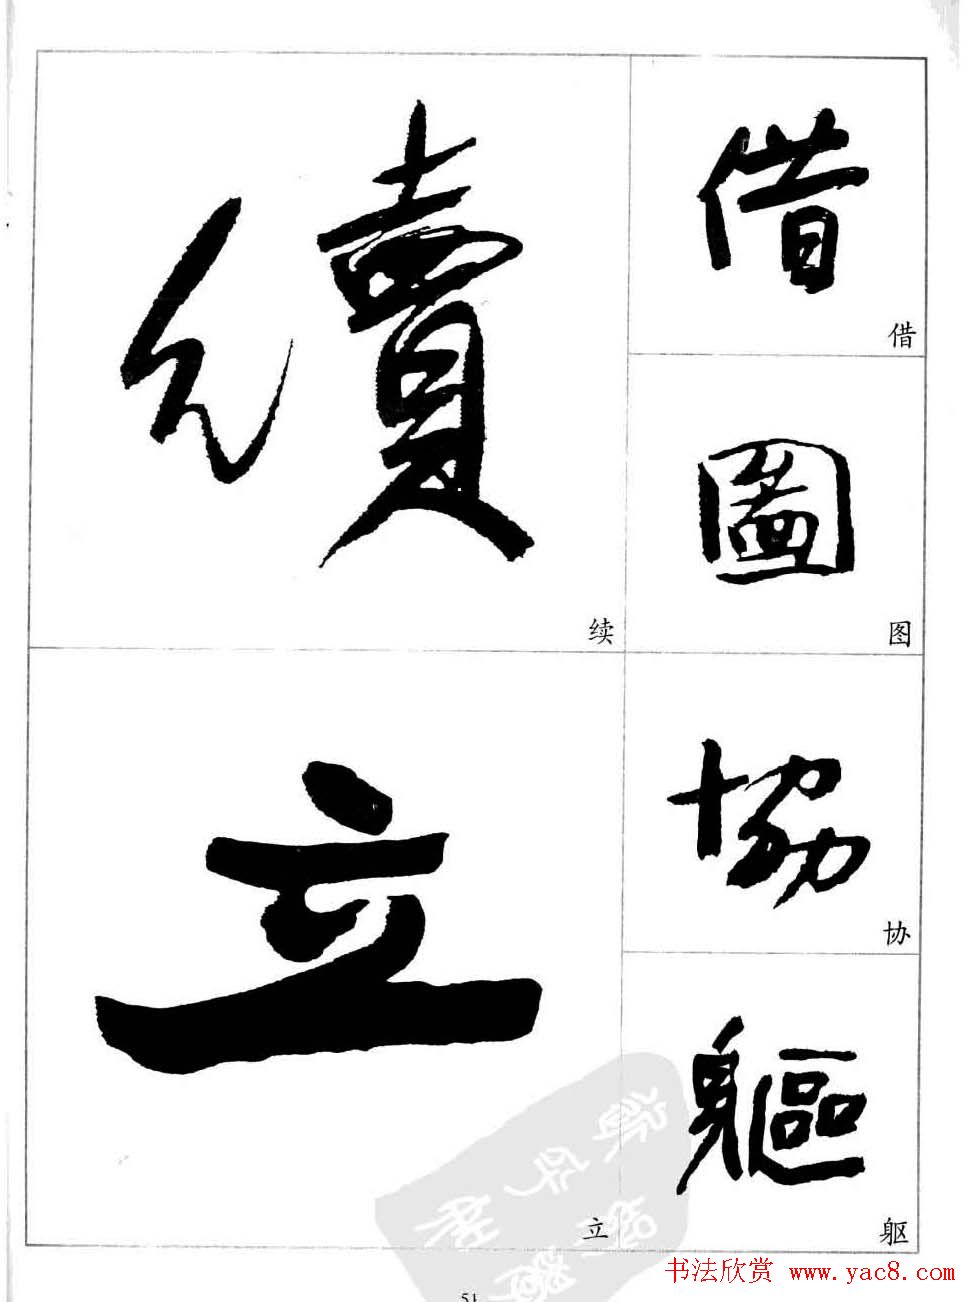 續
续
借
借
圖
图
立
立
協
协
軀
躯
51
书法欣赏 www.yac8.com